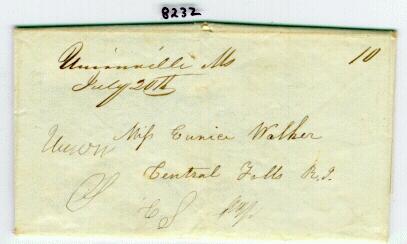 8232
Unionville Ms 10
July 20th
Miss Eunice Walker
Central Falls R.I.